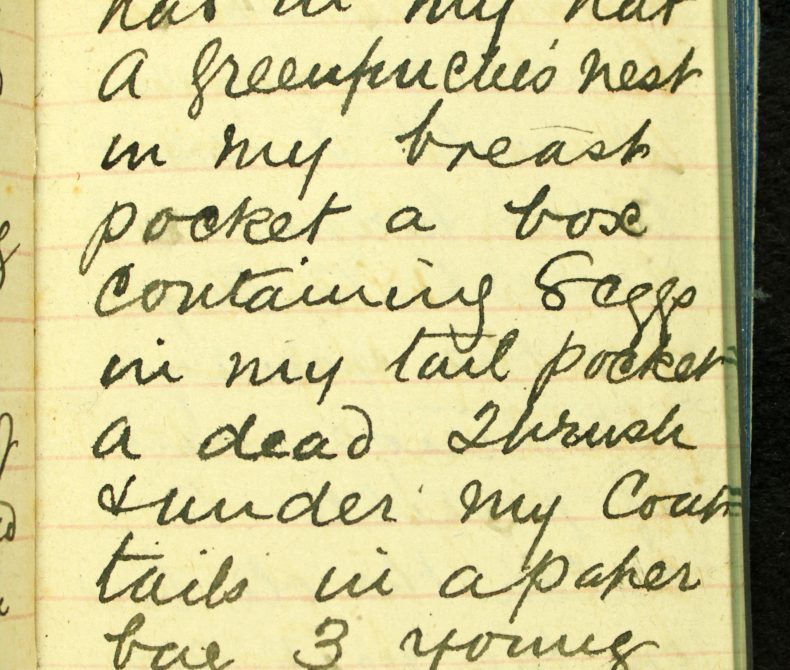 has in my hat
A Greenfinche's nest
in my breast
pocket a box
containing 8 eggs
in my tail pocket
a dead Thrush
& under my Coat
tails in a paper
bag 3 young